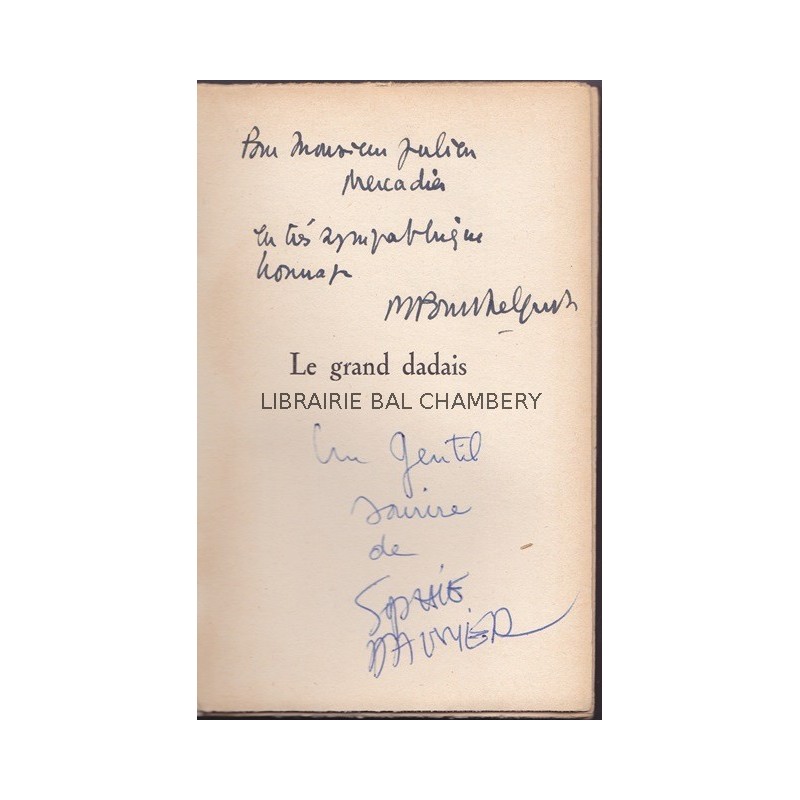 Pour Monsieur Julien
Mercadier
en très sympathique
hommage
Le grand dadais
LIBRAIRIE BAL CHAMBERY
Un Gentil
sourire
de
Sophie
DAUMIER